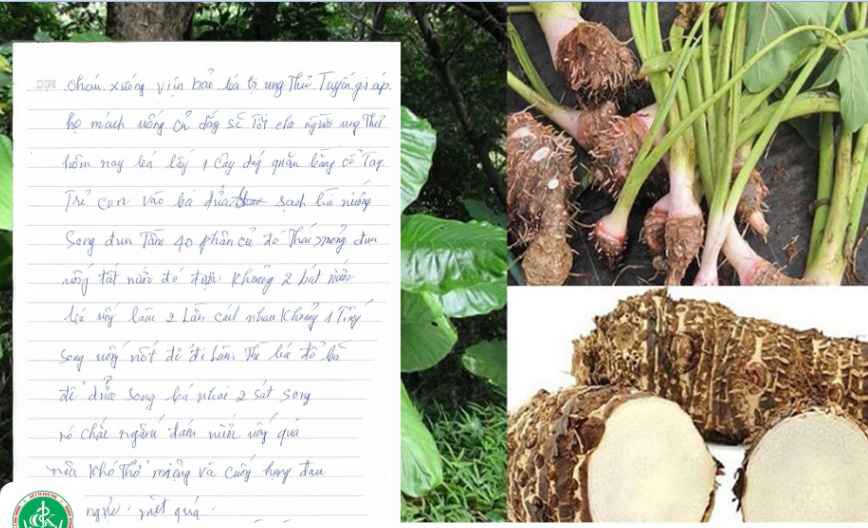 cháu. xuống viện bảo bá bị ung Thư Tuyến giáp.
họ mách uống củ dáy sẽ Tốt cho người ung Thư
hôm nay bá lấy 1 cây dáy quãn bằng cổ Tay
Trẻ con vào bá rửa sạch bá nướng
Song đun Tầm 40 phân củ đó Thái mỏng đun
uống tất nước đó được Khoảng 2 bát nước
bá uống làm 2 Lần cách nhau Khoảng 1 Tiếng
Song uống nốt để đi Làm. Thì bá đổ bã
để rửa Song bá nhai 2 sát song
nó chắc ngấm dấn nước uống quá
nữa Khó Thở miệng và cuống họng đau
ngực. mệt quá.